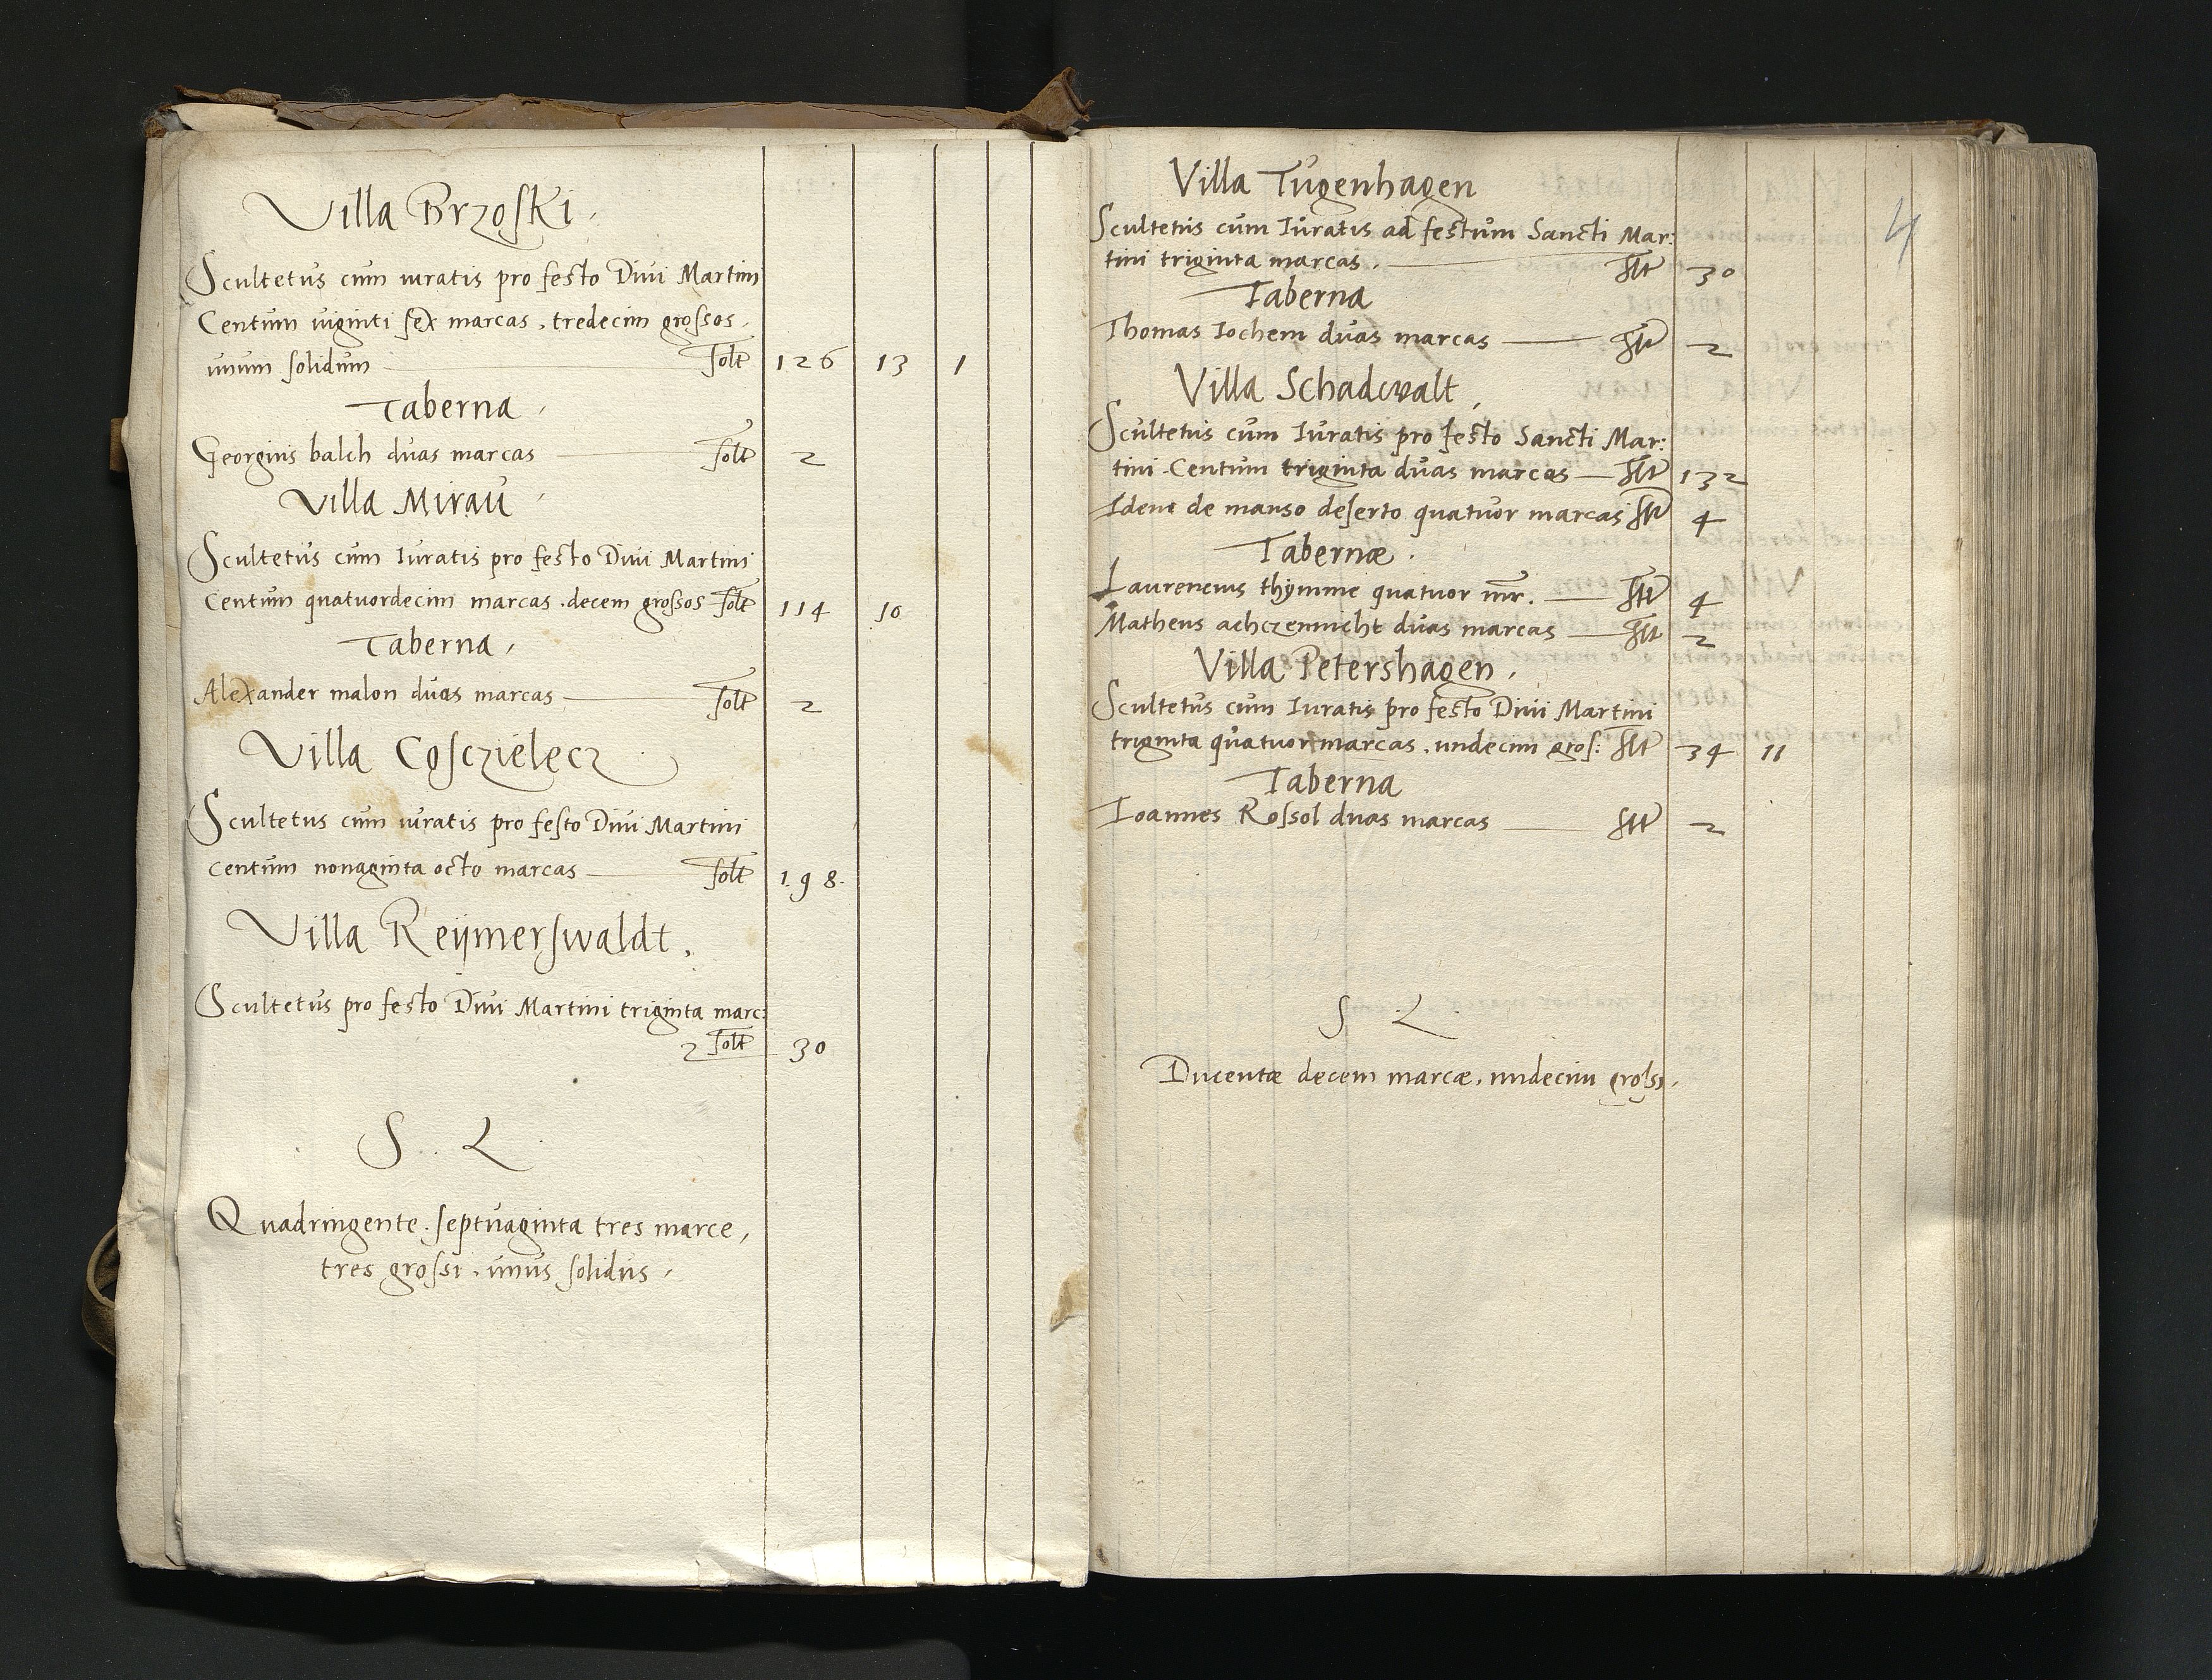 Villa Brzoski.
Scultetus cum iuratis pro festo Divi Martini
Centum viginti sex marcas, tredecim grossos,
unum solidum solt 126 13 1
Taberna,
Georgius balch duas marcas solt 2
Villa Mirau
Scultetus cum Iuratis pro festo Divi Martini
Centum quatuordecim marcas, decem grossos solt 114 10
Taberna,
Alexander malon duas marcas solt 2
Villa Cosczielecz
Scultetus cum iuratis pro festo Divi Martini
centum nonaginta octo marcas solt 198.
Villa Reÿmerswaldt.
Scultetus pro festo Divi Martini triginta marc:
solt 30
S. L.
Quadringente septuaginta tres marce,
tres grossi, unus solidus,
4
Villa Tugenhagen
Scultetus cum Iuratis ad festum Sancti Mar:
tini triginta marcas. slt 30
Taberna
Thomas Iochem duas marcas slt 2
Villa Schadwalt,
Scultetus cum Iuratis pro festo Sancti Mar:
tini Centum triginta duas marcas slt 132
Idem de manso deserto quatuor marcas slt 4
Tabernæ.
Laurencius thymme quatuor mr. slt 4
Matheus achczennicht duas marcas slt 2
Villa Petershagen,
Scultetus cum Iuratis pro festo Divi Martini
triginta quatuor marcas, undecim gros: slt 34 11
Taberna
Ioannes Rossol duas marcas slt 2
S L
Ducentæ decem marcæ, undecim gross.